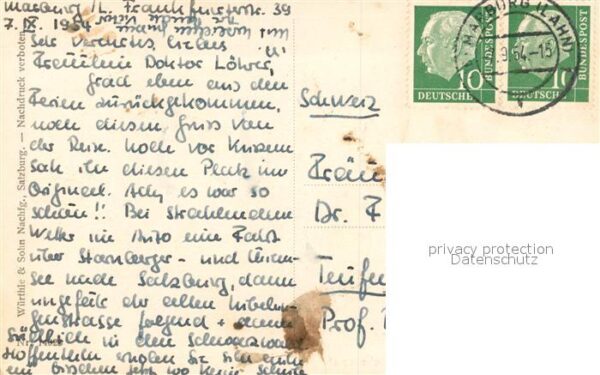 Marburg /L. Frankfurterstr. 39
7. IX. 1954
Sehr verehrtes, liebes
Fräulein Doktor Löhrer,
grad eben aus den
Ferien zurückgekommen,
noch diesen Gruss von
der Reise. Noch vor kurzem
sah ich diesen Platz im
Original. Ach, es war so
schön!! Bei strahlendem
Wetter im Auto eine Fahrt
über Starnberger- und Chiem-
see nach Salzburg, dann
ungefähr der alten Nibelun-
genstrasse folgend +
Südlich in den Schwarzwald
Hoffentlich erholen Sie sich
ein bisschen jetzt wo keine Schule
Würthle & Sohn Nachfg., Salzburg. — Nachdruck verboten
Nr.
Schweiz
Fräu
Dr. F
Teufe
Prof.
MARBURG (LAHN)
54.-15
10
DEUTSCHE
BUNDESPOST
10
DEUTSCHE
BUNDESPOST
privacy protection
Datenschutz